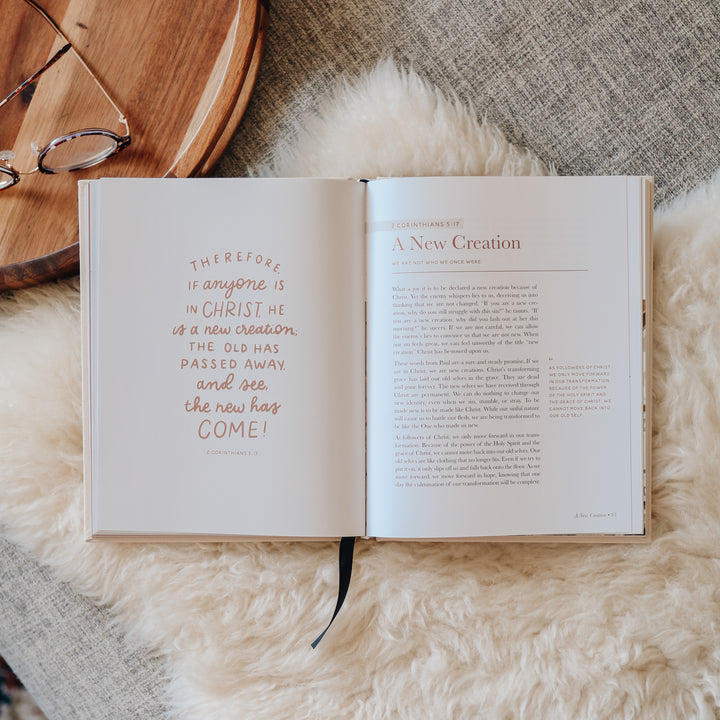 THEREFORE,
IF anyone IS
IN CHRIST, HE
is a new creation;
THE OLD HAS
PASSED AWAY,
and see,
the new has
COME!
2 CORINTHIANS 5:17
2 CORINTHIANS 5:17
A New Creation
WE ARE NOT WHO WE ONCE WERE.
What a joy it is to be declared a new creation because of
Christ. Yet the enemy whispers lies to us, deceiving us into
thinking that we are not changed. "If you are a new cre-
ation, why do you still struggle with this sin?" he taunts. "If
you are a new creation, why did you lash out at her this
morning?" he sneers. If we are not careful, we can allow
the enemy's lies to convince us that we are not new. When
our sin feels great, we can feel unworthy of the title "new
creation" Christ has bestowed upon us.
These words from Paul are a sure and steady promise. If we
are in Christ, we are new creations. Christ's transforming
grace has laid our old selves in the grave. They are dead
and gone forever. The new selves we have received through
Christ are permanent. We can do nothing to change our
new identity, even when we sin, stumble, or stray. To be
made new is to be made like Christ. While our sinful nature
will cause us to battle our flesh, we are being transformed to
be like the One who made us new.
As followers of Christ, we only move forward in our trans-
formation. Because of the power of the Holy Spirit and the
grace of Christ, we cannot move back into our old selves. Our
old selves are like clothing that no longer fits. Even if we try to
put it on, it only slips off us and falls back onto the floor. As we
move forward, we move forward in hope, knowing that one
day the culmination of our transformation will be complete.
"
AS FOLLOWERS OF CHRIST,
WE ONLY MOVE FORWARD
IN OUR TRANSFORMATION.
BECAUSE OF THE POWER
OF THE HOLY SPIRIT AND
THE GRACE OF CHRIST, WE
CANNOT MOVE BACK INTO
OUR OLD SELF.
A New Creation •